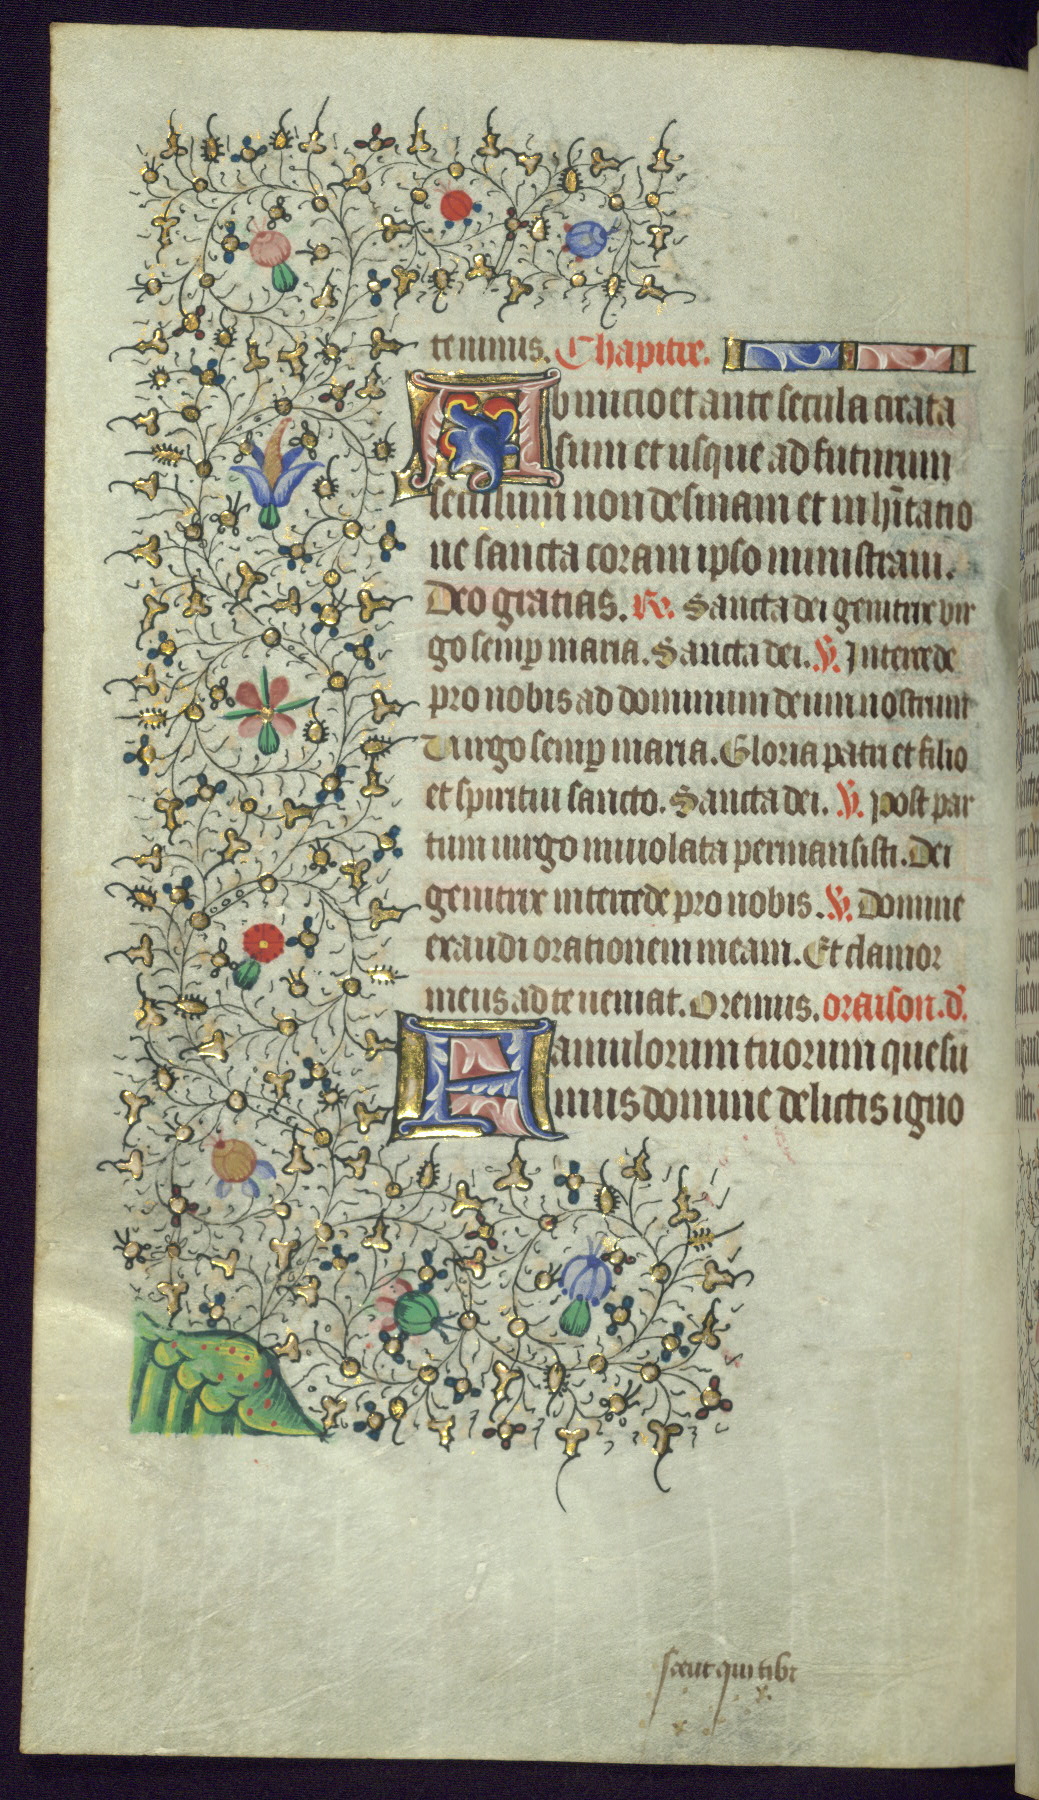 terminus. Chapitre.
Ab inicio et ante secula creata
sum et usque ad futurum
seculum non desinam et in hītatio
ne sancta coram ipso ministraui.
Deo gratias. R. Sancta dei genitrix vir
go semp maria. Sancta dei. V. Intercede
pro nobis ad dominum deum nostrum
Uirgo semp maria. Gloria patri et filio
et spiritui sancto. Sancta dei. V. post par
tum uirgo inuiolata permansisti. Dei
genitrix intercede pro nobis. V. Domine
exaudi orationem meam. Et clamor
meus ad te ueniat. Oremus. oraison. d.
Famulorum tuorum quesu
mus domine delictis igno
scent qui tibi